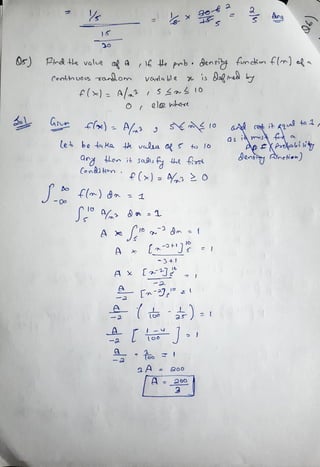 = 1/5 / 15/20 = 1/5 × 20/15 = 2/5 Ans
Q5) Find the value of A, if the prob. density function f(x) of a
continuous random variable x is defined by
f(x) = A/x³ , 5 ≤ x ≤ 10
0 , elsewhere
Sol) Given f(x) = A/x³ , 5 ≤ x ≤ 10 and set it equal to 1,
Let be take the values of 5 to 10
any then it satisfy the first
condition. f(x) = A/x³ ≥ 0
∫ -∞ ∞ f(x) dx = 1
∫ 5 10 A/x³ dx = 1
A × ∫ 5 10 x⁻³ dx = 1
A × [x⁻³⁺¹] 5 10 / -3+1 = 1
A × [x⁻²] 5 10 / -2 = 1
A/-2 [x⁻²] 5 10 = 1
A/-2 ( 1/100 - 1/25 ) = 1
A/-2 [ 1-4 / 100 ] = 1
A/-2 · -3/100 = 1
3A = 200
A = 200/3